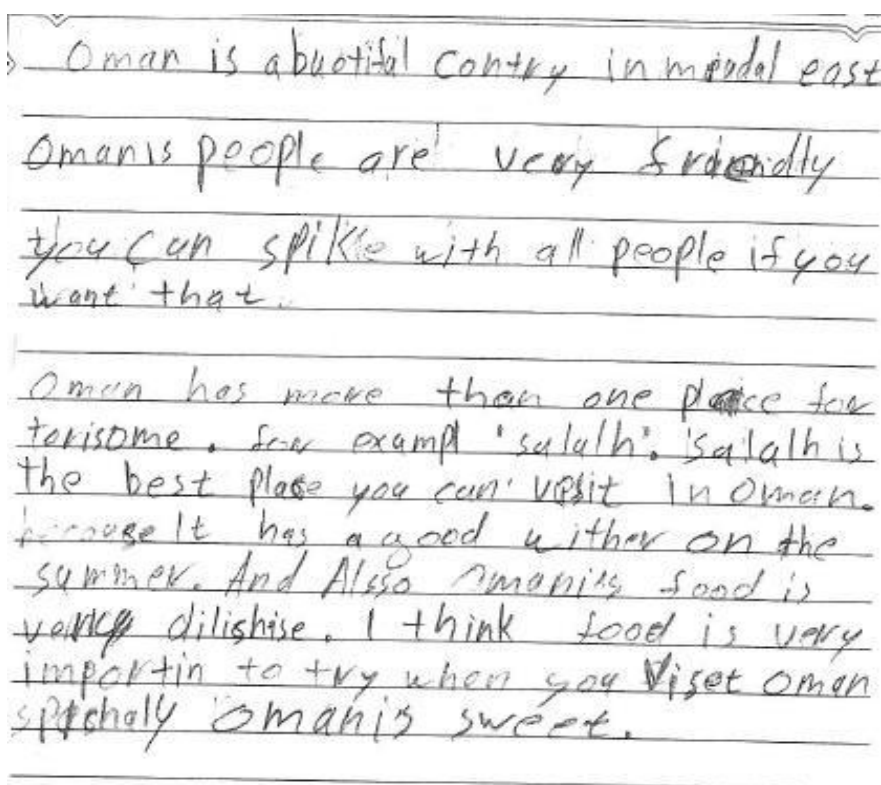 Oman is a buotiful contry in mpadal east
Omanis people are very friendly
you can spikle with all people if you
want that.
Oman has more than one place for
torisome. for exampl "salalh". Salalh is
the best place you can vesit in Oman.
because It has a good wither on the
summer. And Alsso Omanies food is
very dilishise. I think food is very
importin to try when you Viset Oman
spichaly Omanis sweet.